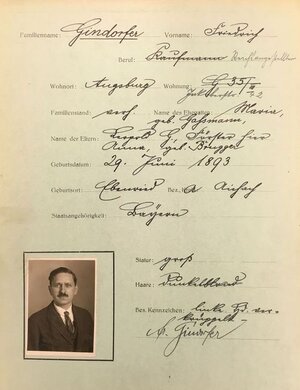 Familienname: Gindorfer Vorname: Friedrich
Beruf: Kaufmann
Wohnort: Augsburg Wohnung: G 35/II
Familienstand: verh. Name des Ehegatten: Maria,
geb. Gaßmann,
Name der Eltern: Leopold G., Förster hier
Anna, geb. Brugger
Geburtsdatum: 29. Juni 1893
Geburtsort: Ebenried Bez.-A Aichach
Staatsangehörigkeit: Bayern
Statur: groß
Haare: Dunkelblond
Bes. Kennzeichen: linke Hd. ver-
krüppelt
Gindorfer